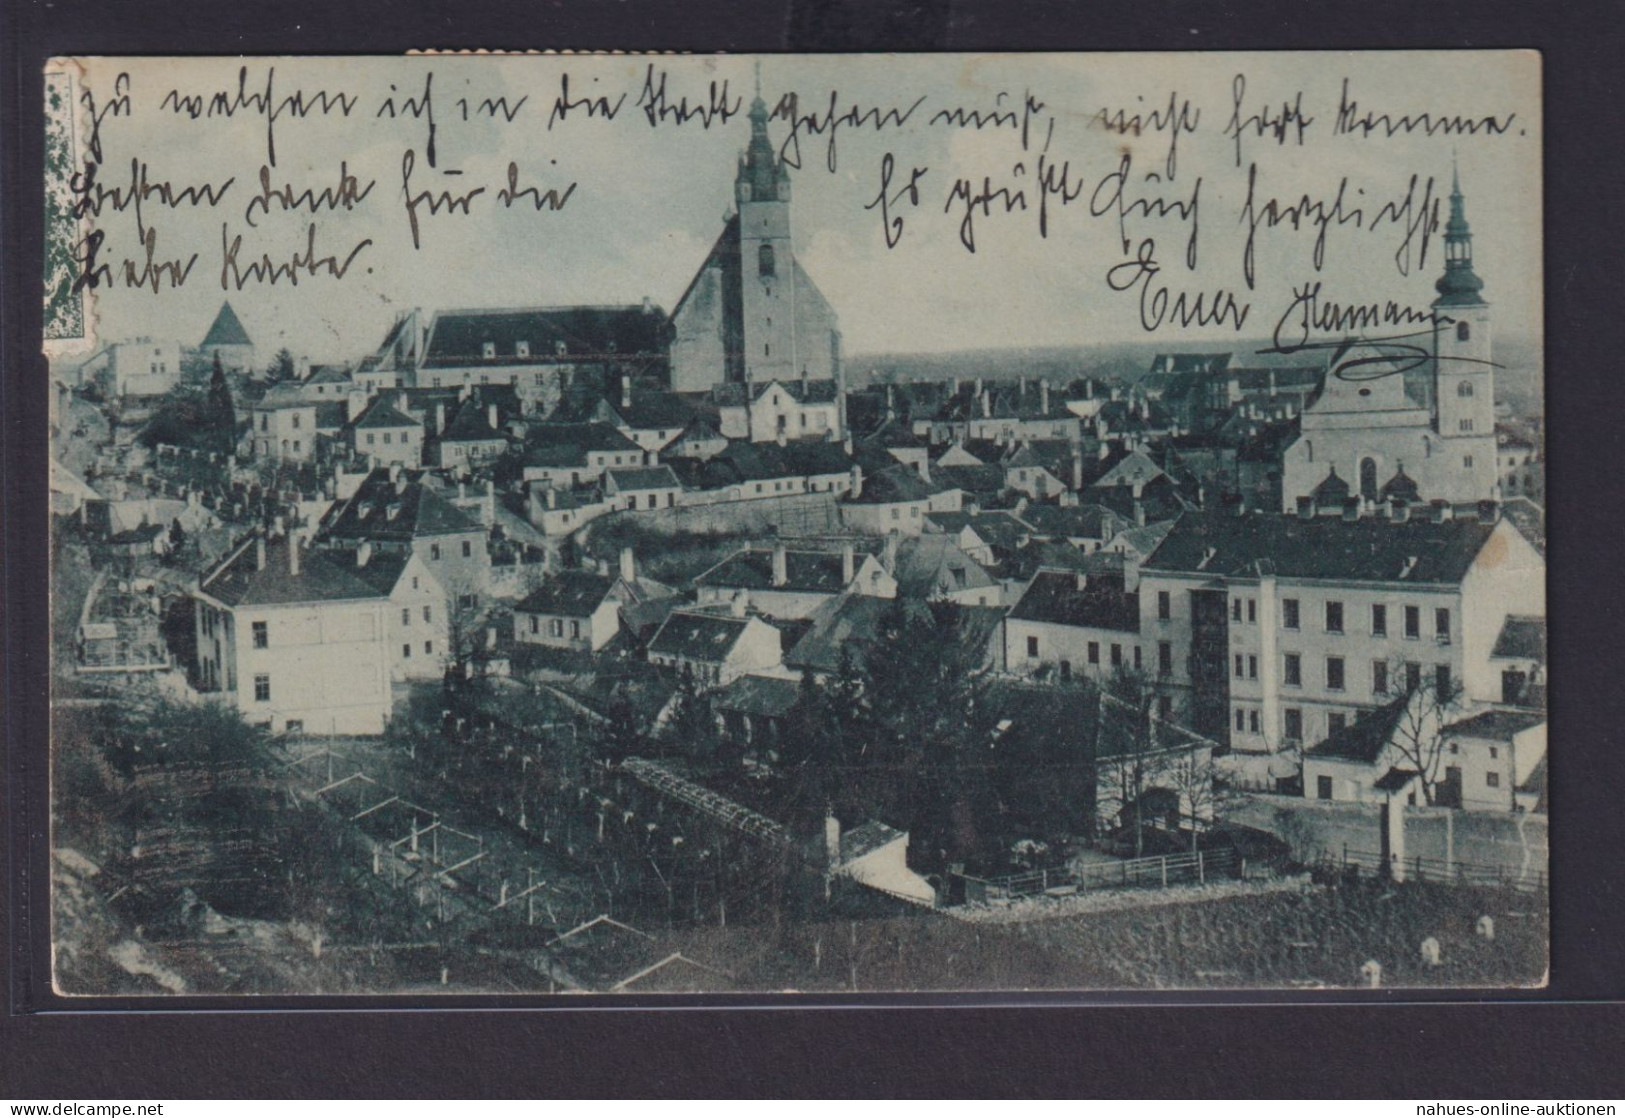 zu welchen ich in die Stadt gehen muß, nicht fort komme.
Besten Dank für die
liebe Karte.
Es grüßt Euch herzlichst
Euer Hermann
nahues-online-auktionen